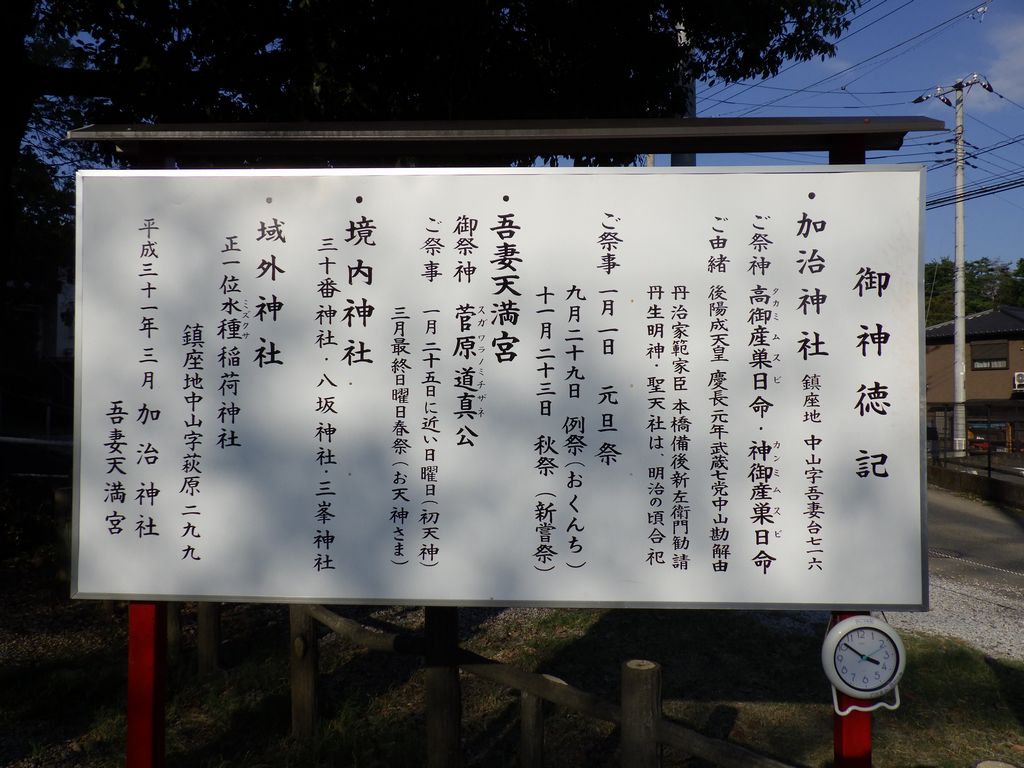 御神徳記
・加治神社 鎮座地 中山字吾妻台七一六
ご祭神 高御産巣日命・神御産巣日命
タカミムスビ カンミムスビ
ご由緒 後陽成天皇 慶長元年武蔵七党中山勘解由
丹治家範家臣 本橋備後新左衛門勧請
丹生明神・聖天社は、明治の頃合祀
ご祭事 一月一日 元旦祭
九月二十九日 例祭(おくんち)
十一月二十三日 秋祭(新嘗祭)
・吾妻天満宮
御祭神 菅原道真公
スガワラノミチザネ
ご祭事 一月二十五日に近い日曜日(初天神)
三月最終日曜日春祭(お天神さま)
・境内神社
三十番神社・八坂神社・三峯神社
・域外神社
正一位水種稲荷神社
ミズクサ
鎮座地中山字萩原二九九
平成三十一年三月 加治神社
吾妻天満宮